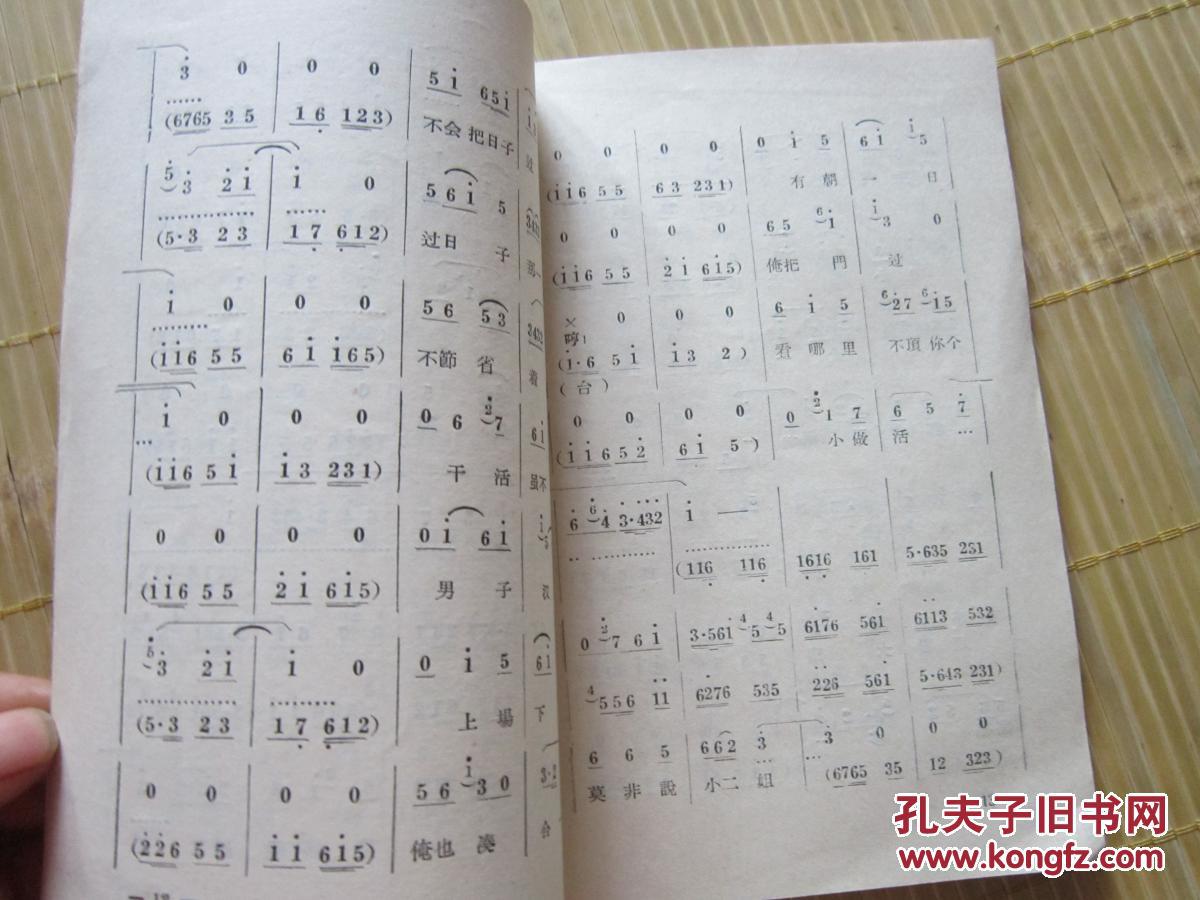 3̇ 0 | 0 0 | 5 1̇ 6 5 1̇
(6765 35 | 16 123)
不会 把日子 过
5 3̇ 2̇ 1̇ | 1̇ 0 | 5 6 1̇ 5
(5·3 23 | 17 612)
过日 子
1̇ 0 | 0 0 | 5 6 5 3
(1̇1̇6 55 | 61̇ 1̇65)
不節 省
1̇ 0 | 0 0 | 0 6 2̇ 7 | 6 1̇
(1̇1̇6 51̇ | 1̇3 231)
干 活 虽不
0 0 | 0 0 | 0 1̇ 6 1̇
(1̇1̇6 55 | 2̇1̇ 61̇5)
男 子
5 3̇ 2̇ 1̇ | 1̇ 0 | 0 1̇ 5 | 6 1̇
(5·3 23 | 17 612)
上 場 下
0 0 | 0 0 | 5 6 1̇ 3 0
(2̇2̇6 55 | 1̇1̇ 61̇5)
俺也 凑 合
0 0 | 0 0 | 0 1̇ 5 | 6 1̇ 1̇ 5
(1̇1̇6 55 | 63 231)
有 朝 一 日
0 0 | 0 0 | 6 5 6 1̇ | 1̇ 3 0
(1̇1̇6 55 | 2̇1̇ 61̇5)
俺把 門 过
× 0 | 0 0 | 6 1̇ 5 | 6 27 6 1̇5
哼!
(1̇·6 51̇ | 1̇3 2)
看 哪 里 不頂 你个
(台)
0 0 | 0 0 | 0 2̇ 1 7 | 6 5 7̇
(1̇1̇6 52̇ | 61̇ 5)
小 做 活 …
6 6 4 3·432 | 1̇ —
(116 116 | 1616 161 | 5·635 231
0 2 7 6 1̇ | 3·561̇ 4 5 4 5 | 6176 561 | 6113 532
4 556 11 | 6276 535 | 226 561 | 5·643 231)
6 6 5 | 6 6 2 3̇ | 3̇ 0 | 0 0
莫 非 說 小二 姐 (6765 35 | 12 323)
孔夫子旧书网
www.kongfz.com